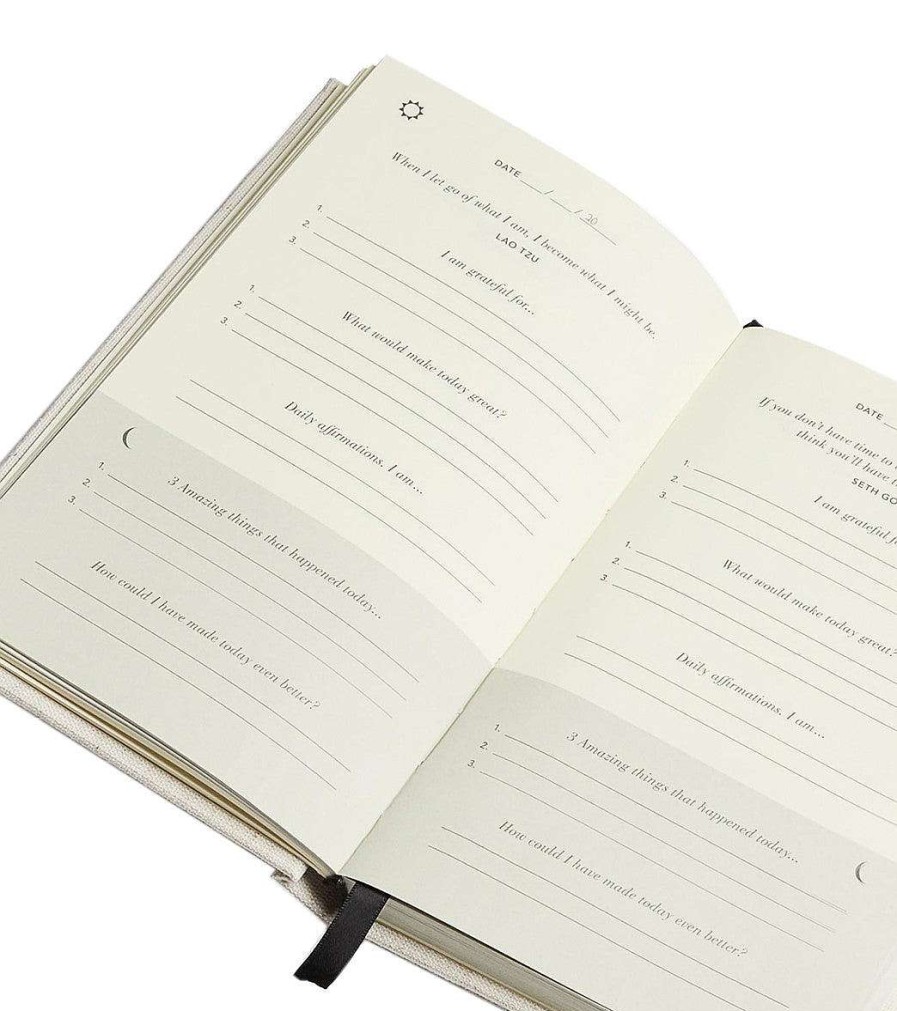 DATE ___/___/20___
When I let go of what I am, I become what I might be.
LAO TZU
I am grateful for...
1.
2.
3.
What would make today great?
1.
2.
3.
Daily affirmations. I am...
3 Amazing things that happened today...
1.
2.
3.
How could I have made today even better?
DATE
If you don't have time to
think you'll have
SETH GO
I am grateful fo
1.
2.
3.
What would make today great?
1.
2.
3.
Daily affirmations. I am...
3 Amazing things that happened today...
1.
2.
3.
How could I have made today even better?